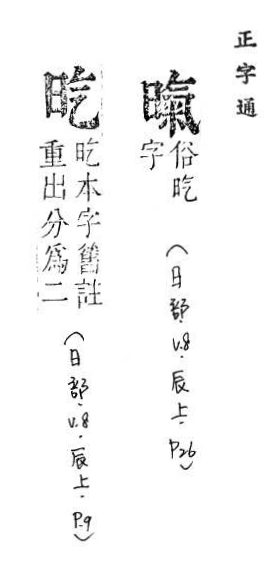 正字通
暣
俗㫓
字
(日部.v.8.辰上.P.26)
㫓
㫓本字舊註
重出分爲二
(日部.v.8.辰上.P.9)